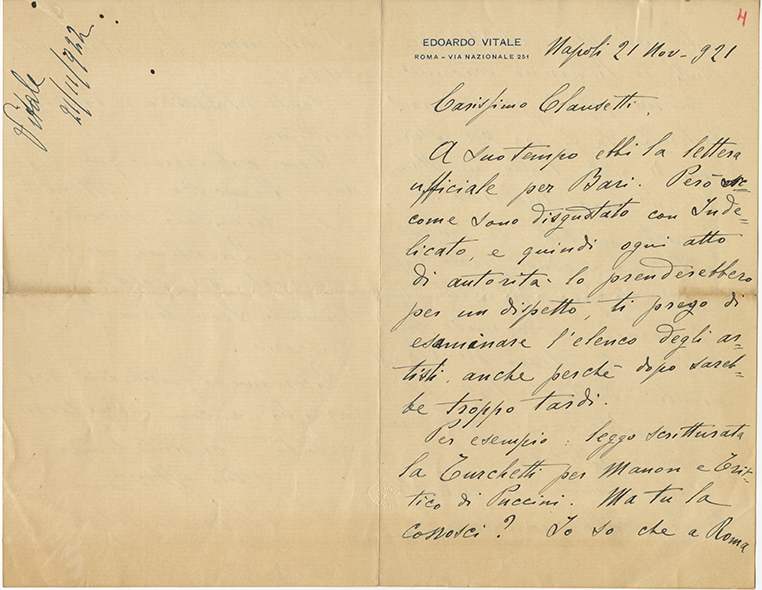 Vitale
21/11/1922
4
EDOARDO VITALE
ROMA - VIA NAZIONALE 251
Napoli 21 Nov - 921
Carissimo Clausetti,
A suo tempo ebbi la lettera
ufficiale per Bari. Però sic
come sono disgustato con Inde=
licato, e quindi ogni atto
di autorità lo prenderebbero
per un dispetto, ti prego di
esaminare l'elenco degli ar=
tisti, anche perchè dopo sareb=
be troppo tardi.
Per esempio: leggo scritturata
la Turchetti per Manon e Trit=
tico di Puccini. Ma tu la
conosci? Io so che a Roma